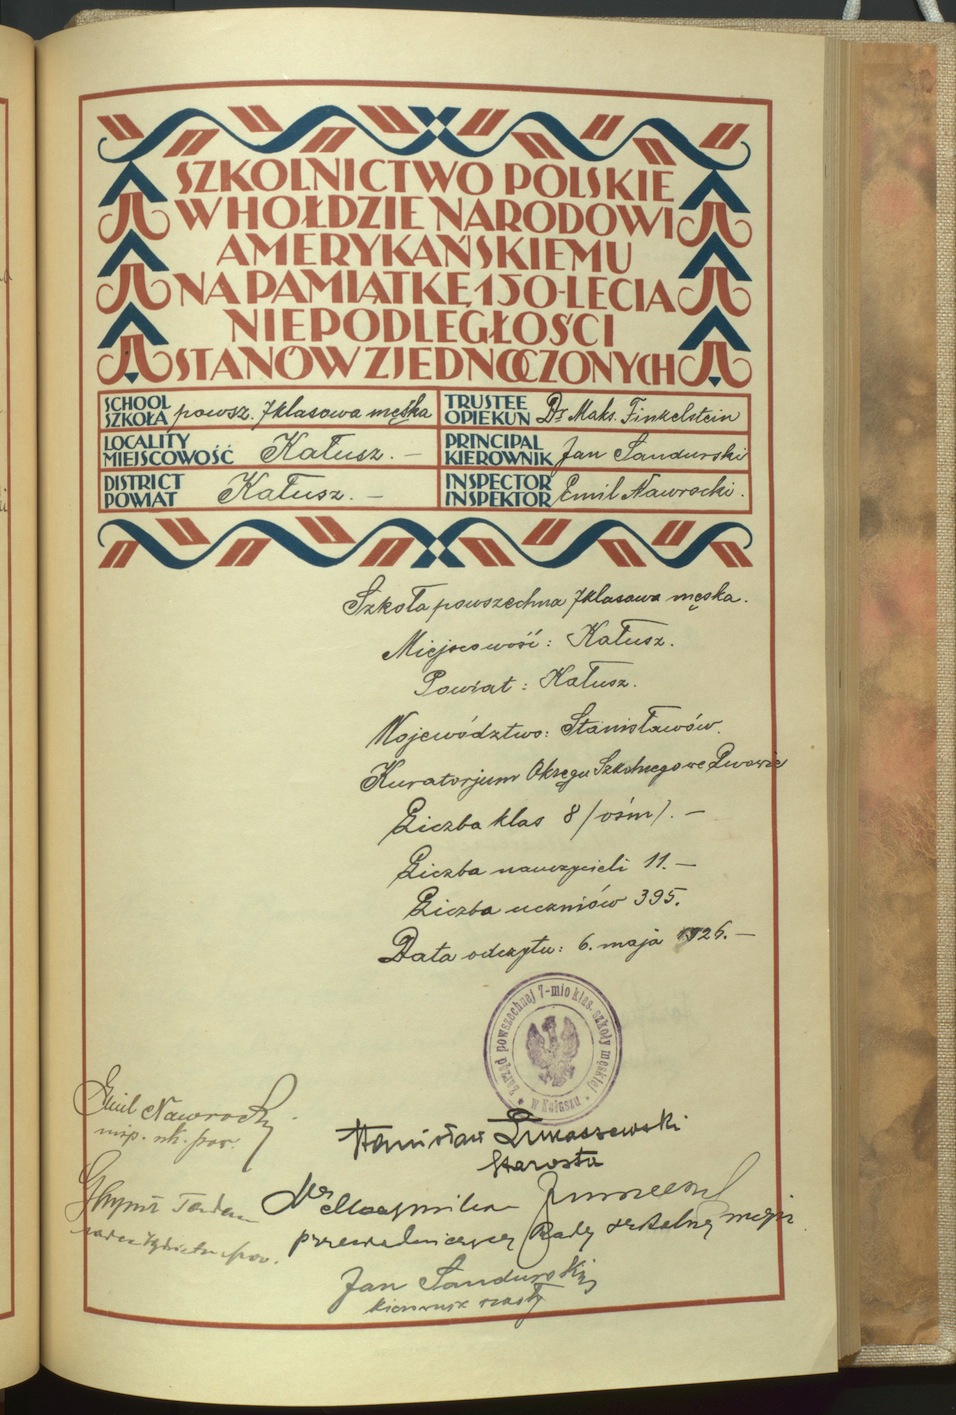 SZKOLNICTWO POLSKIE
W HOŁDZIE NARODOWI
AMERYKAŃSKIEMU
NA PAMIĄTKĘ 150-LECIA
NIEPODLEGŁOŚCI
STANÓW ZJEDNOCZONYCH
SCHOOL
SZKOŁA powsz. 7klasowa męska
TRUSTEE
OPIEKUN Dr Maks. Finkelstein
LOCALITY
MIEJSCOWOŚĆ Kałusz. –
PRINCIPAL
KIEROWNIK Jan Sandurski
DISTRICT
POWIAT Kałusz. –
INSPECTOR
INSPEKTOR Emil Nawrocki.
Szkoła powszechna 7klasowa męska.
Miejscowość: Kałusz.
Powiat: Kałusz.
Województwo: Stanisławów.
Kuratorjum Okręgu Szkolnego we Lwowie
Liczba klas 8 /ośm/. –
Liczba nauczycieli 11. –
Liczba uczniów 395.
Data odczytu: 6. maja 1926. –
Zarząd powszechnej 7-mio klas. szkoły męskiej
w Kałuszu
Emil Nawrocki
insp. szk. pow.
Stanisław Łukaszewski
Starosta
Dr Maksymilian
przewodniczący Rady szkolnej miejs.
Jan Sandurski
kierownik szkoły